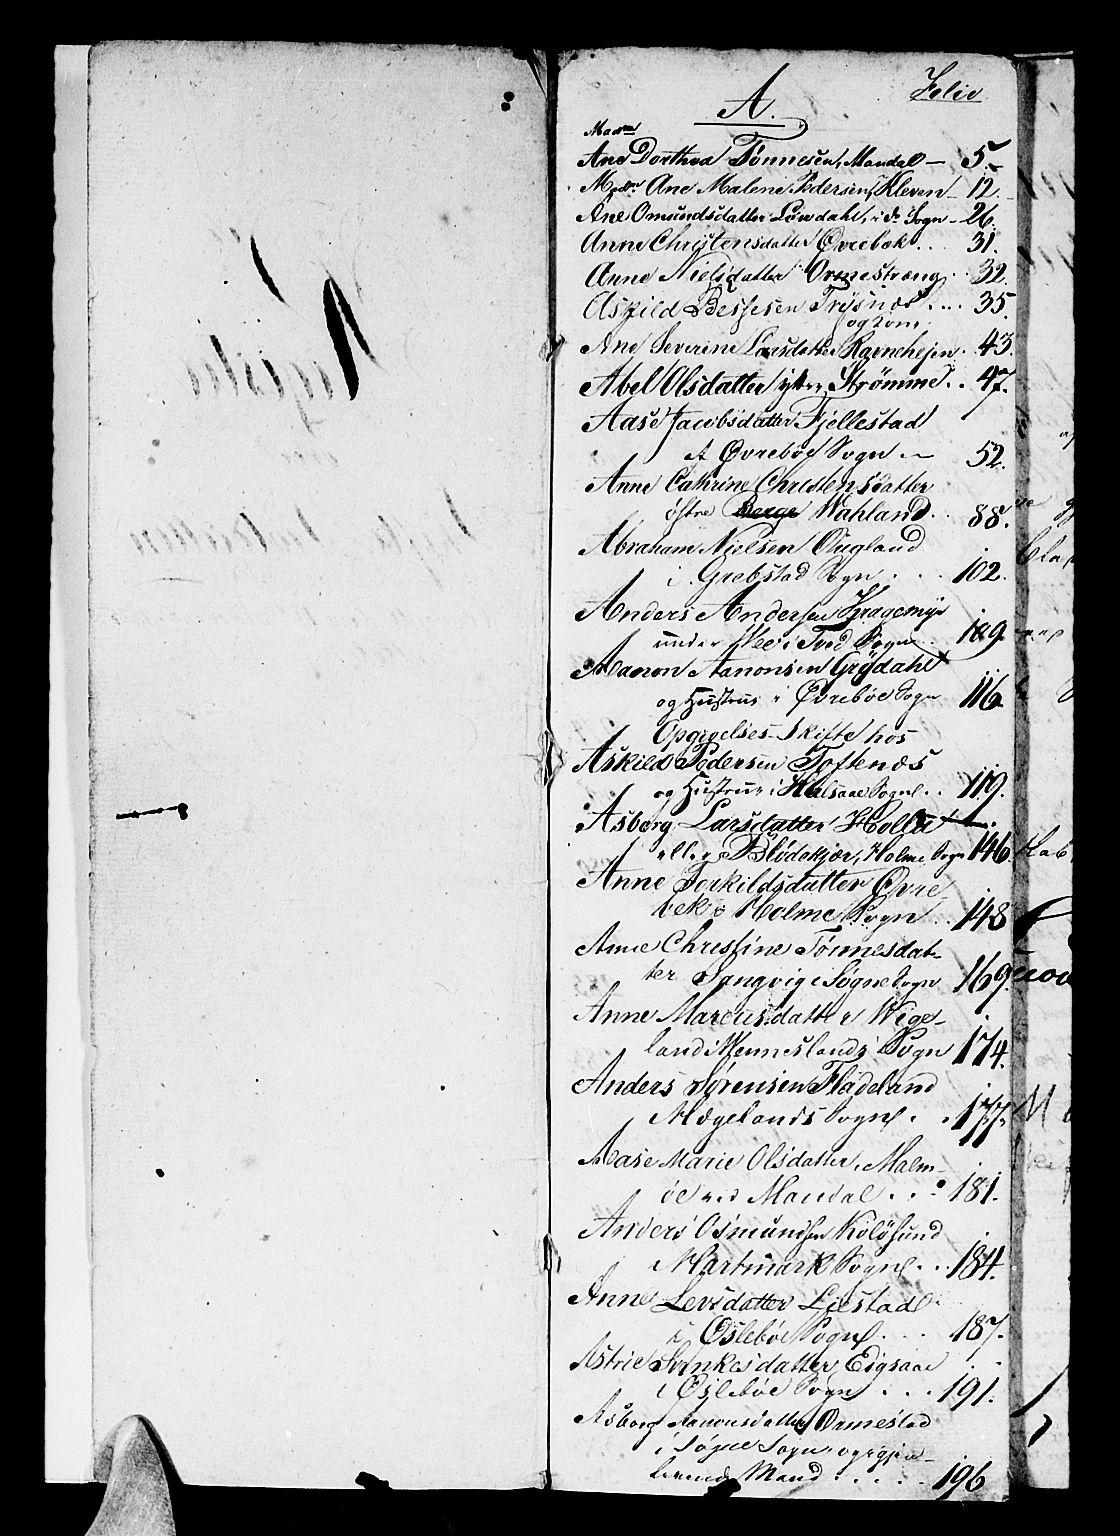 Folio
A.
Madm
Ane Dorthea Tønnesen, Mandal — 5.
Madm Ane Malene Pedersen, Kleven — 12.
Ane Omundsdatter Løvdahl, i do Sogn — 26.
Anne Christensdatter Øvrebek . . . 31.
Anne Nielsdatter Ormestrøng . . 32.
Askild Trysnæs . . . 35.
Ane Severine Larsdatter Ravnehejen . 43.
Abel Olsdatter ytre Strømme . . 47.
Aase Jacobsdatter Fjellestad
Øvrebøe Sogn — 52.
Anne Cathrine Christensdatter
østre Berge Wahland . . 88.
Abraham Nielsen Augland
i Grebstad Sogn . . . 102.
Anders Andersen Kragemyr
under Wee i Tved Sogn . . 109.
Aanon Aanonsen Grødahl
og Hustrue i Øvrebøe Sogn 116.
Opgivelses Skifte hos
Askild Pedersen Toftenæs
og Hustrue i Halsaae Sogn . . 119.
Asborg Larsdatter Holte
eller Blødekjær, Holme Sogn 146.
Anne Torkildsdatter Øvre
bek i Holme Sogn . . 148
Anne Christine Tønnesdat-
ter Langvig i Søgne Sogn 169.
Anne Marcusdatter Wige-
land i Wenneslands Sogn 174.
Anders Sørensen Fladeland
Hægelands Sogn . . 177.
Aase Marie Olsdatter, Malm-
øe ved Mandal . . . 181.
Anders Osmundsen Koløsund
Hartmark Sogn . . . 184.
Anne Levsdatter Liestad
i Øslebøe Sogn . . . 187.
Astrie Svinkesdatter Eigsaae
i Øslebøe Sogn . . . 191.
Asborg Aanonsdatter Ormestad
i Søgne Sogn og igjen-
levende Mand . . . . . 196
Register